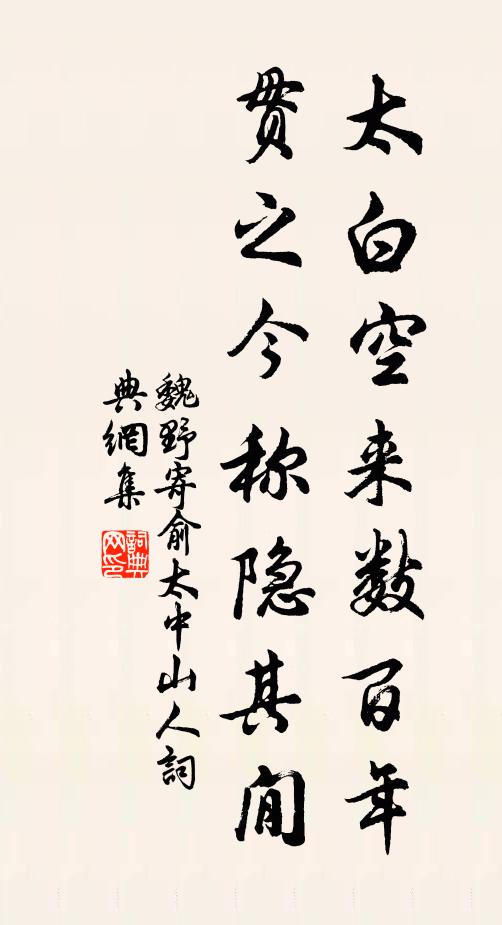 太白空来数百年
贯之今称隐其间
魏野寄俞太中山人詞
典網集
詞典网印